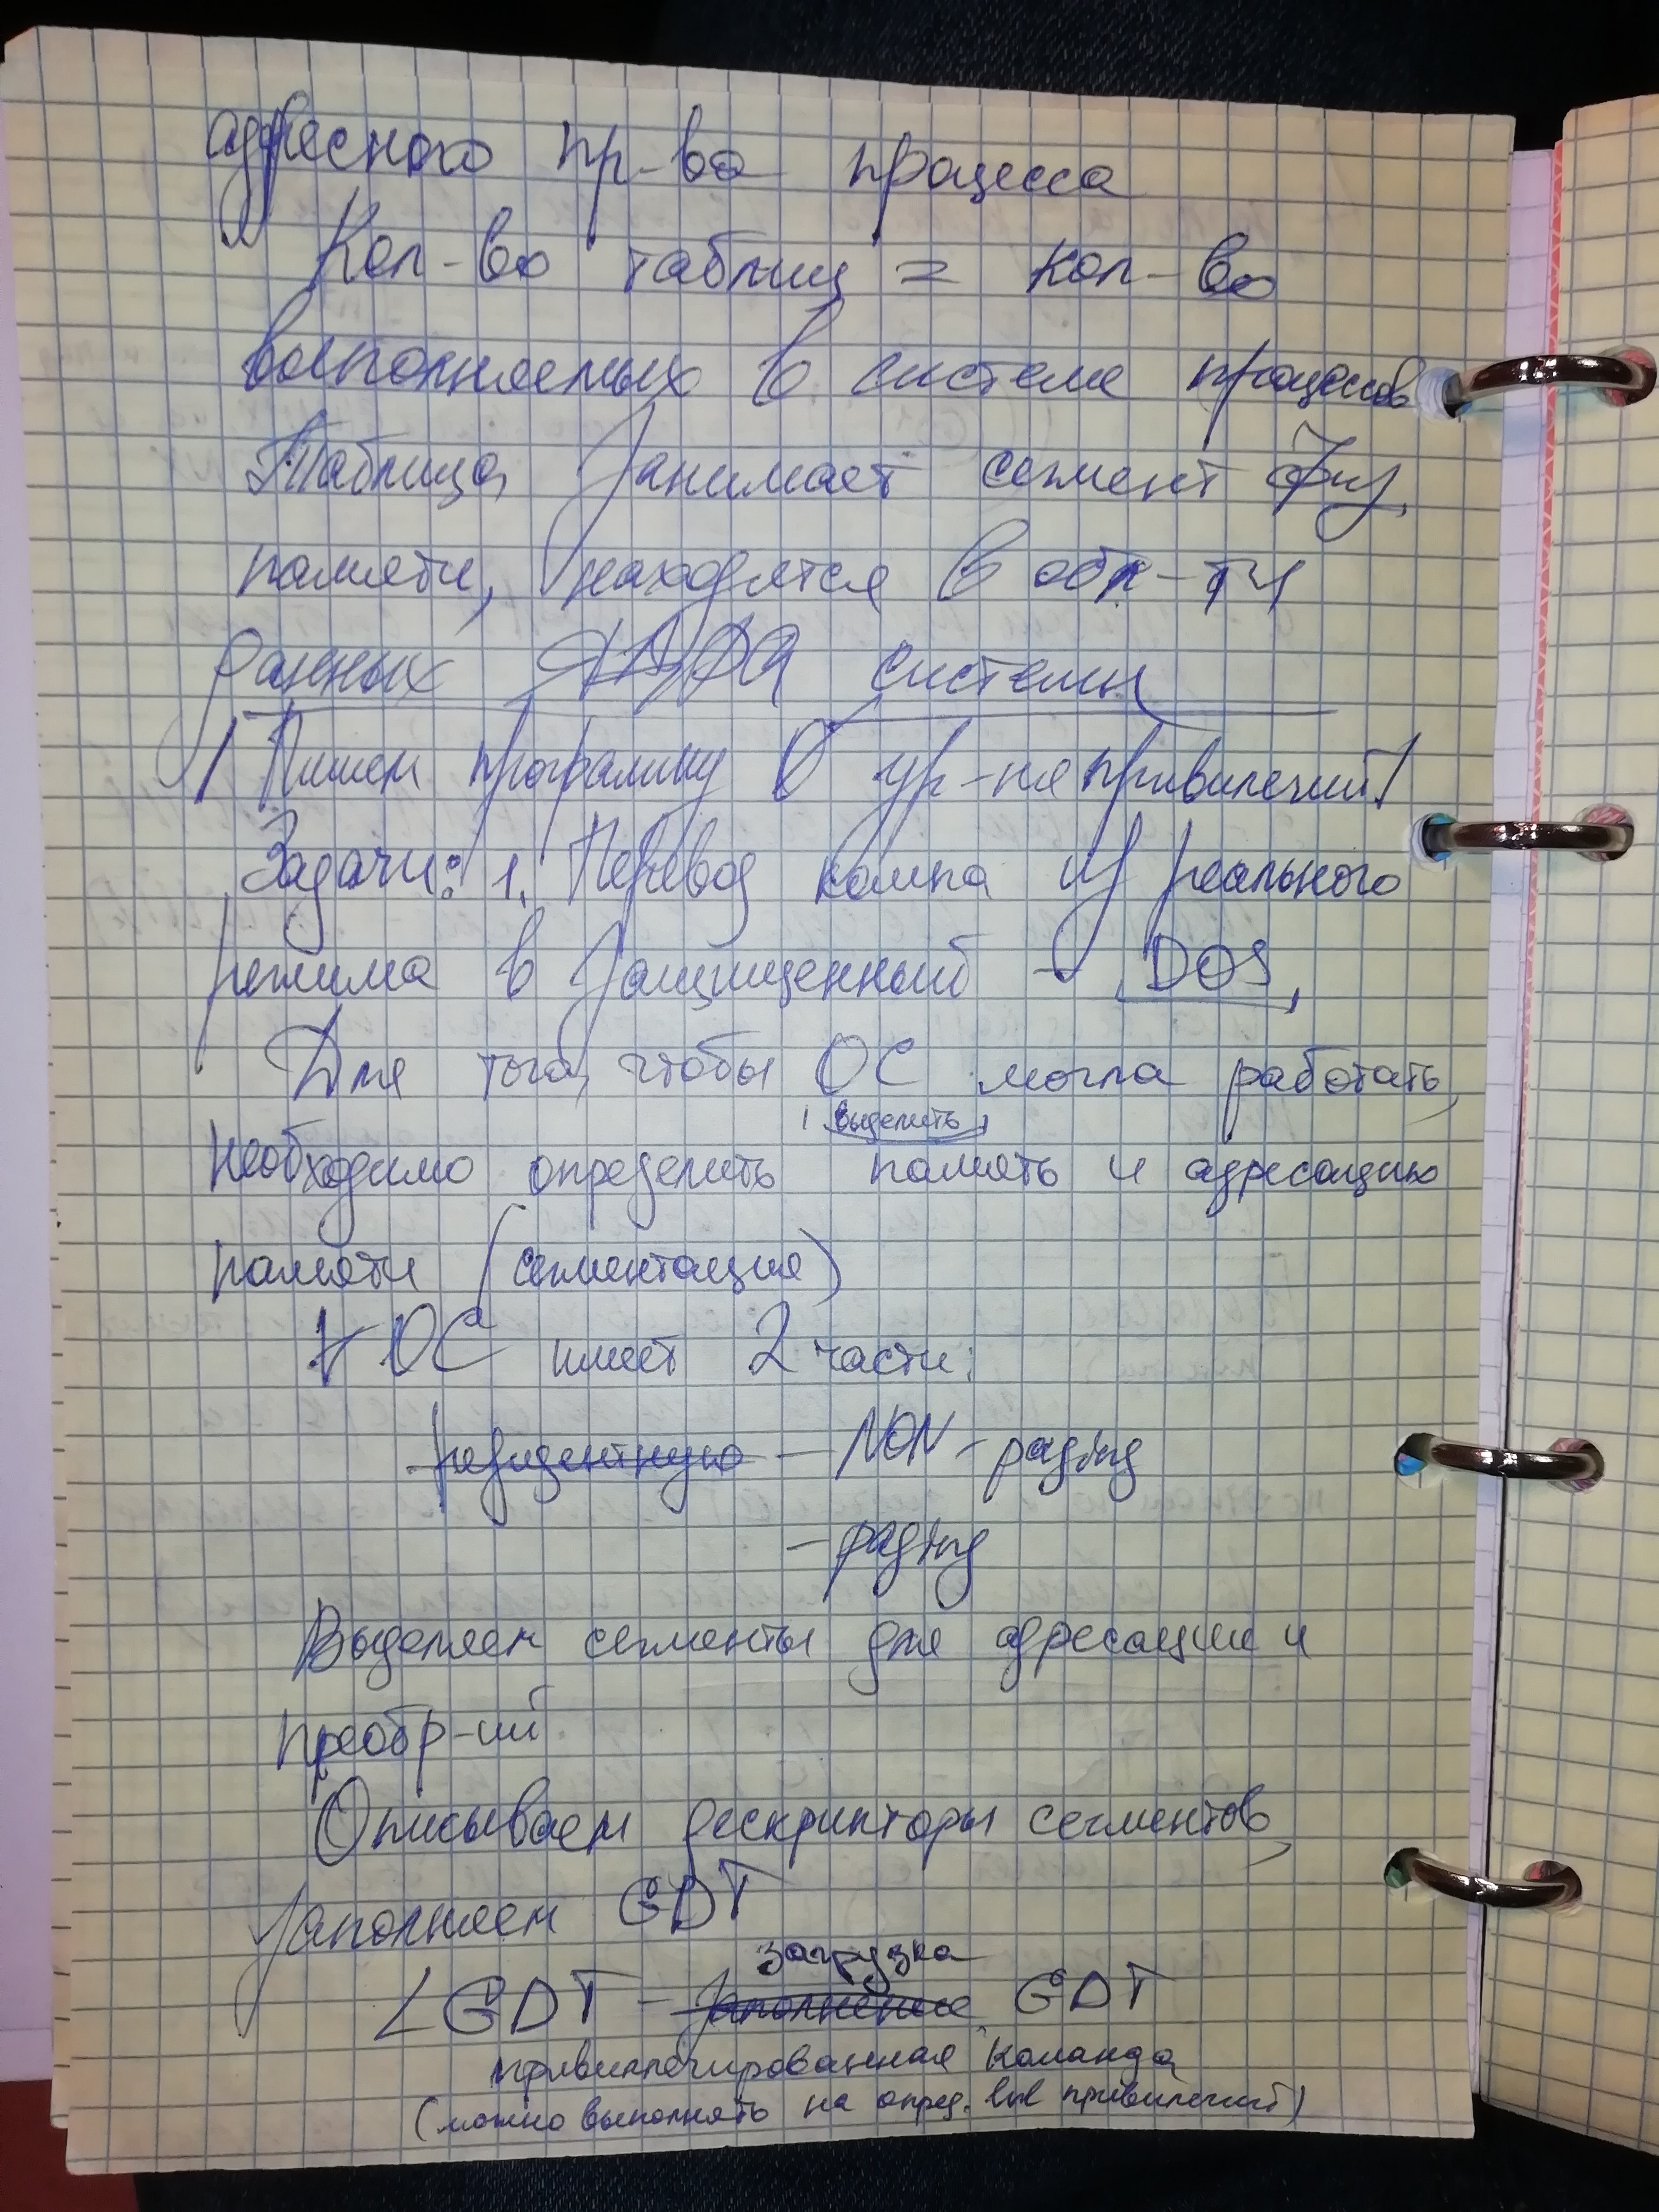 адресного пр-ва процесса
Кол-во таблиц = кол-во
выполняемых в системе процессов
Таблица занимает сегмент физ.
памяти, находятся в обл-ти
данных ЯДРА системы
! Пишем программу 0 ур-ня привилегий!
Задачи: 1. Перевод компа из реального
режима в защищенный - DOS,
Для того, чтобы ОС могла работать,
выделить
необходимо определить память и адресацию
памяти (сегментация)
∀ ОС имеет 2 части:
резидентную — NON-paging
— paging
Выделяем сегменты для адресации и
преобр-ий
Описываем дескрипторы сегментов,
заполняем GDT
загрузка
LGDT - заполнение GDT
привиллегированная команда
(можно выполнять на опред. lvl привилегий)